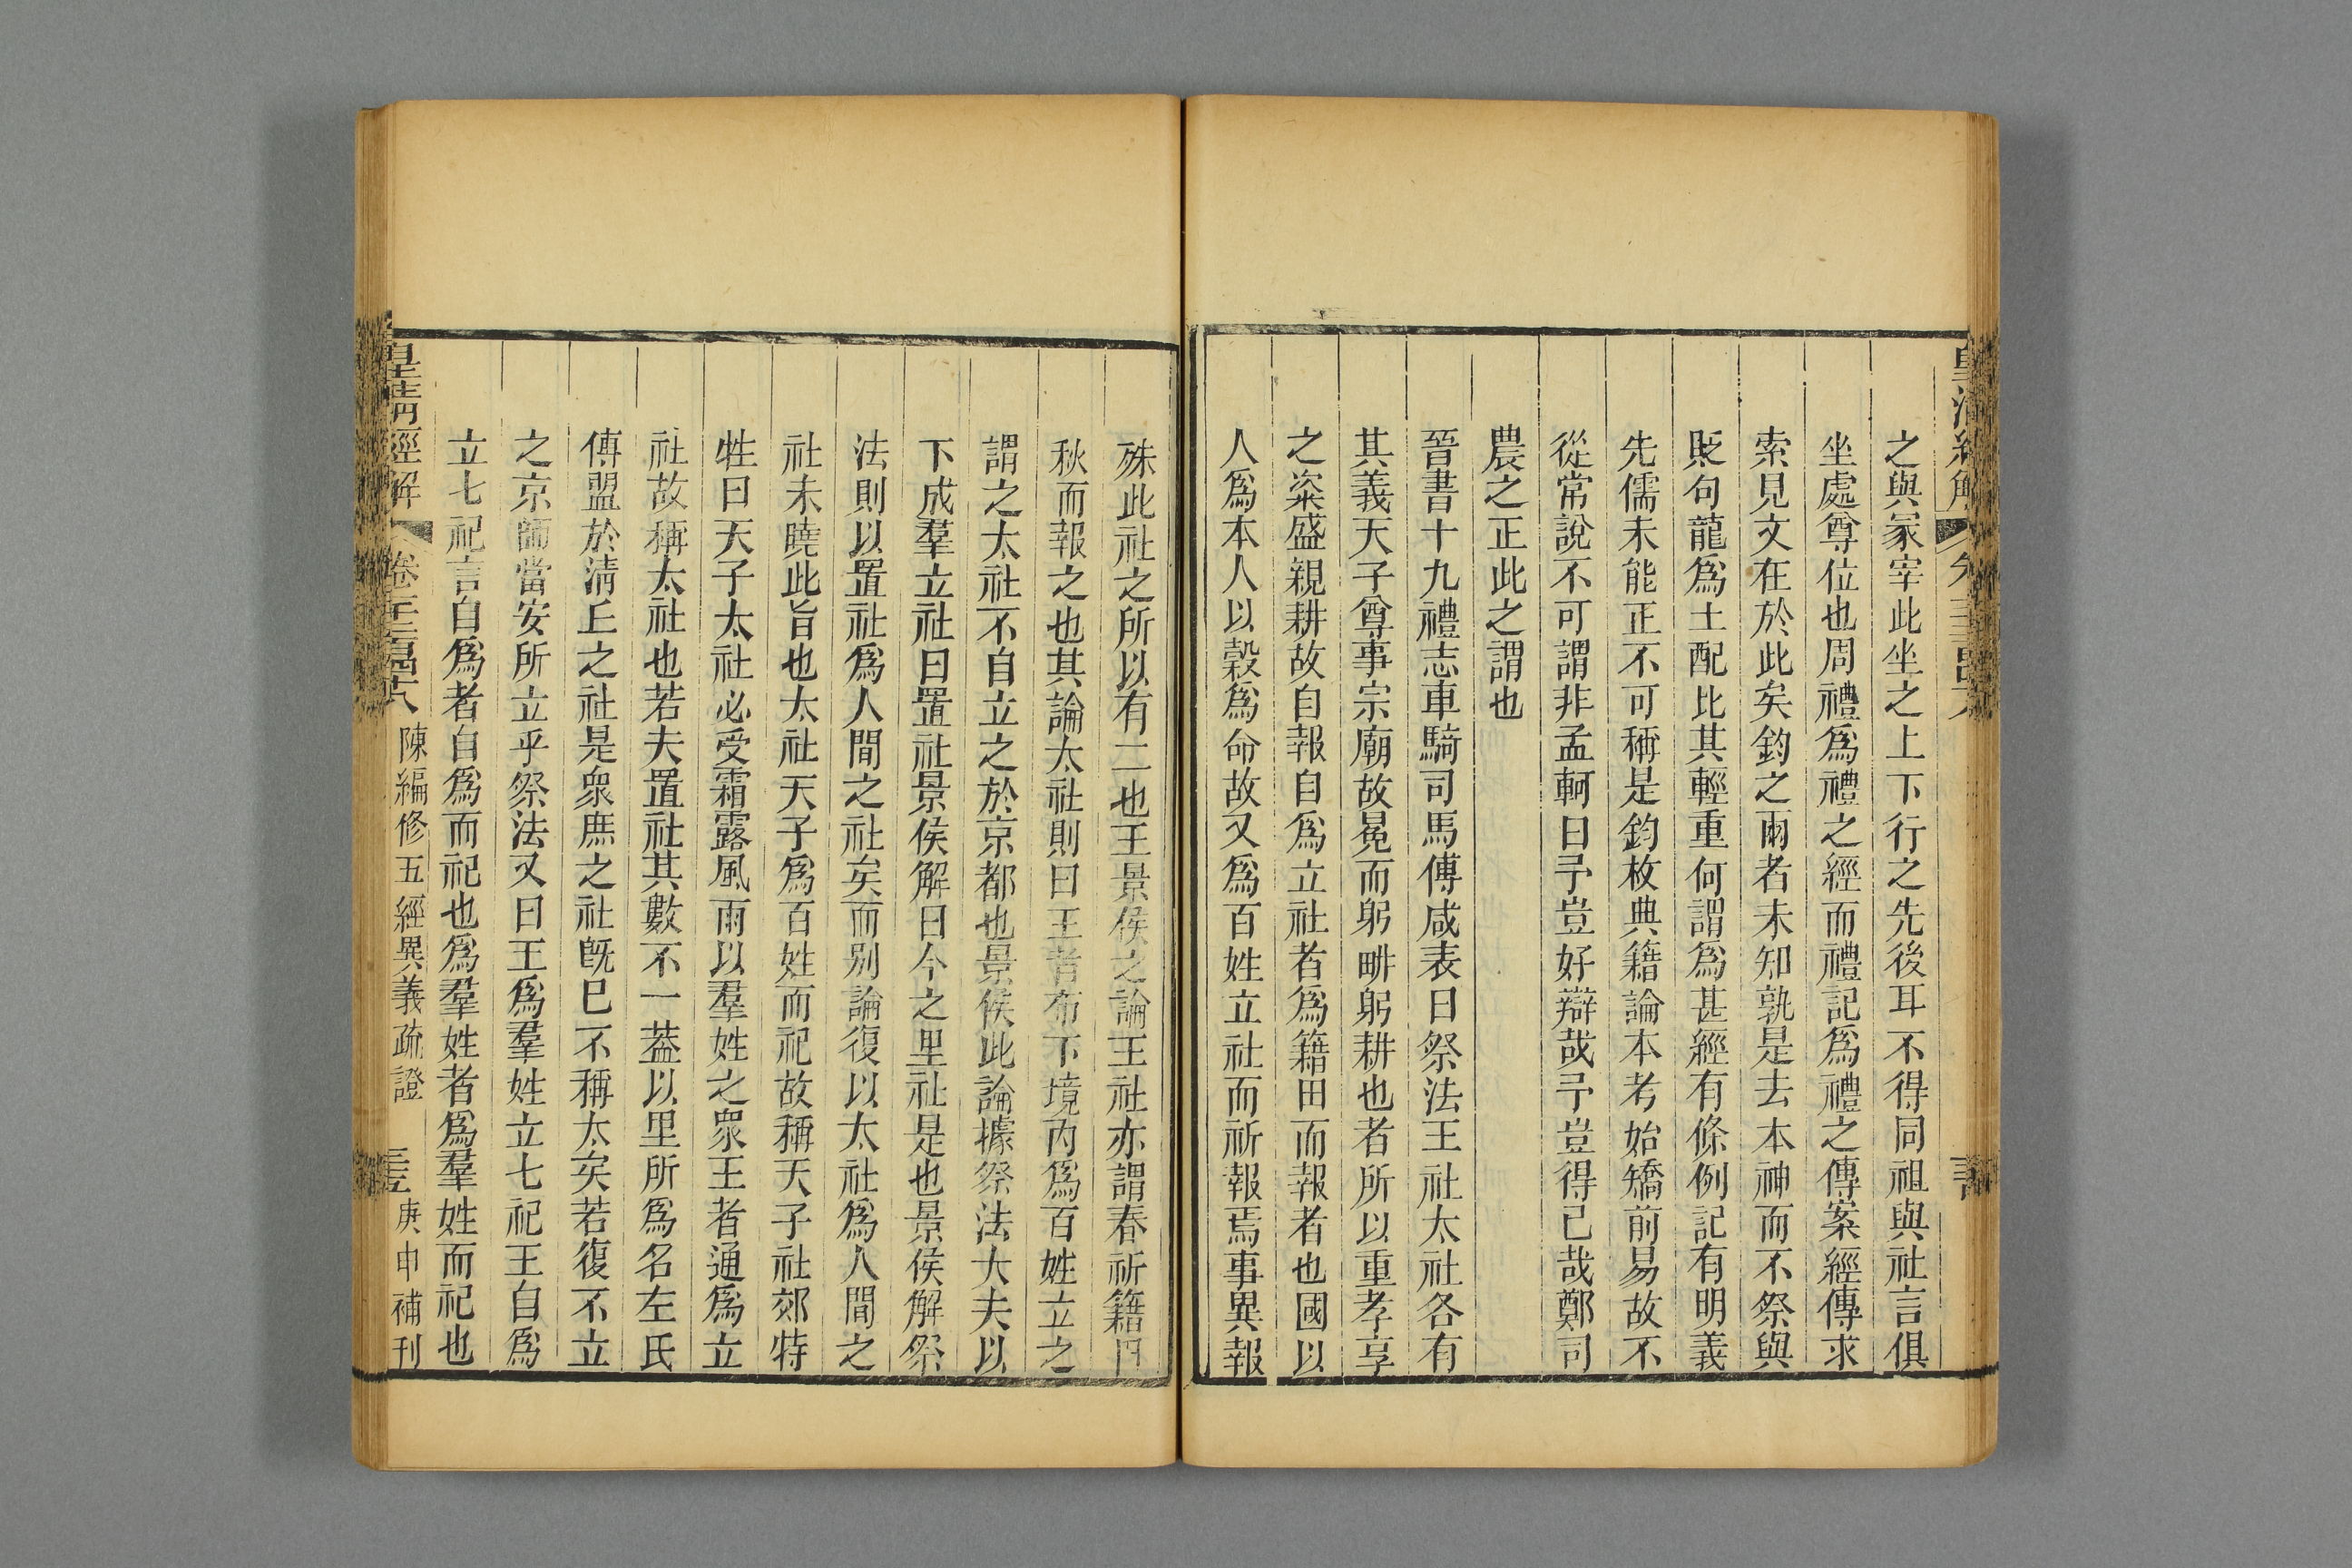 之與冢宰此坐之上下行之先後耳不得同祖與社言俱
坐處尊位也周禮爲禮之經而禮記爲禮之傳案經傳求
索見文在於此矣鈞之兩者未知孰是去本神而不祭與
貶句龍爲土配比其輕重何謂爲甚經有條例記有明義
先儒未能正不可稱是鈞校典籍論本考始矯前易故不
從常說不可謂非孟軻曰予豈好辯哉予豈得已哉鄭司
農之正此之謂也
晉書十九禮志車騎司馬傅咸表曰祭法王社太社各有
其義天子尊事宗廟故冕而躬耕躬耕也者所以重孝享
之粢盛親耕故自報自爲立社者爲籍田而報者也國以
人爲本人以穀爲命故又爲百姓立社而祈報焉事異報
殊此社之所以有二也王景侯之論王社亦謂春祈籍田
秋而報之也其論太社則曰王者布下境內爲百姓立之
謂之太社不自立之於京都也景侯此論據祭法大夫以
下成羣立社曰置社景侯解曰今之里社是也景侯解祭
法則以置社爲人間之社矣而别論復以太社爲人間之
社未曉此旨也太社天子爲百姓而祀故稱天子社郊特
牲曰天子太社必受霜露風雨以羣姓之衆王者通爲立
社故稱太社也若夫置社其數不一葢以里所爲名左氏
傳盟於清丘之社是衆庶之社旣已不稱太矣若復不立
之京師當安所立乎祭法又曰王爲羣姓立七祀王自爲
立七祀言自爲者自爲而祀也爲羣姓者爲羣姓而祀也
皇清經解 卷 陳編修五經異義疏證 庚申補刊